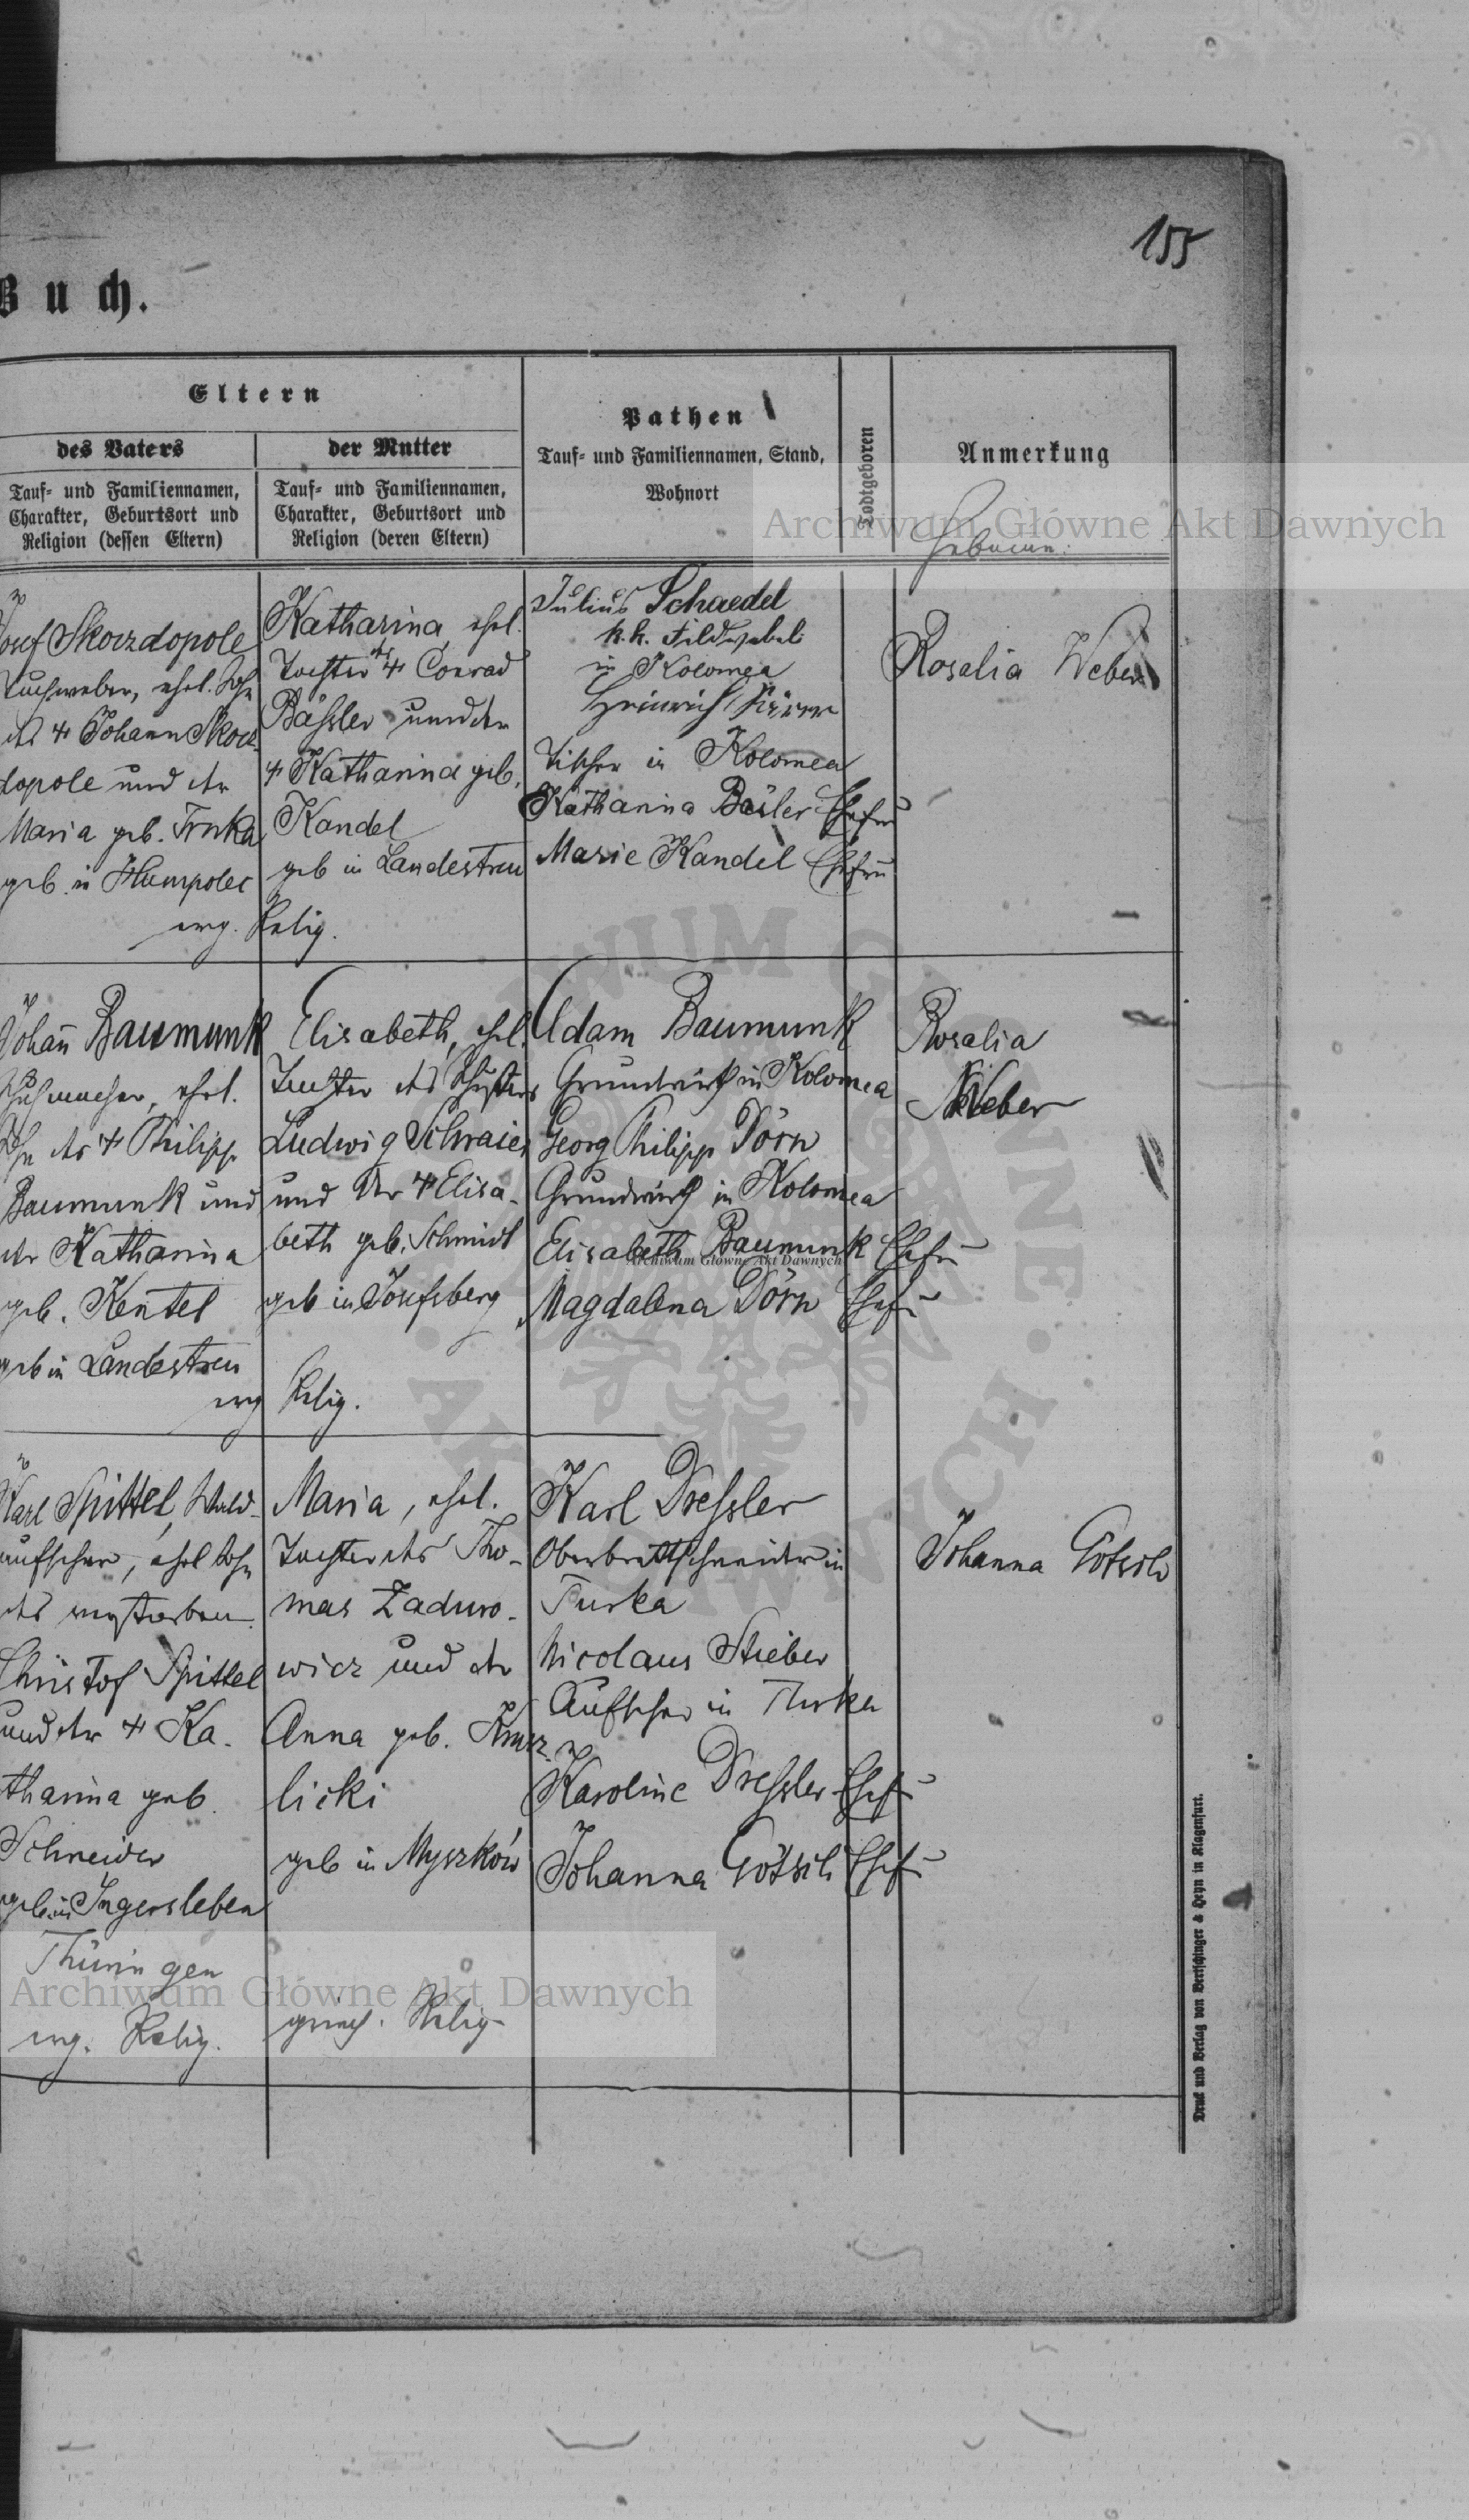 155
Buch.
Eltern
des Vaters
Tauf- und Familiennamen,
Charakter, Geburtsort und
Religion (dessen Eltern)
der Mutter
Tauf- und Familiennamen,
Charakter, Geburtsort und
Religion (deren Eltern)
Pathen
Tauf- und Familiennamen, Stand,
Wohnort
Todtgeboren
Anmerkung
Hebamme:
Archiwum Główne Akt Dawnych
Josef Skorzdopole
Tuchweber, ehel. Sohn
des † Johann Skorz-
dopole und der
Maria geb. Trnka
geb. in Humpolec
evg. Relig.
Katharina, ehel.
Tochter des † Conrad
Bäßler und der
† Katharina geb.
Kandel
geb in Landestreu
Julius Schaedel
k.k. Feldwebel
in Kolomea
Heinrich
Tischler in Kolomea
Katharina Bäsler Ehefr
Marie Kandel Ehefr
Rosalia Weber
Johañ Baumunk
Schuhmacher, ehel.
Sohn des † Philipp
Baumunk und
der Katharina
geb. Kentel
geb in Landestreu
evg Relig.
Elisabeth, ehel.
Tochter des Schusters
Ludwig Schraier
und der † Elisa-
beth geb. Schmidt
geb in Josefsberg
Adam Baumunk
Grundwirth in Kolomea
Georg Philipp Dörn
Grundwirth in Kolomea
Elisabeth Baumunk Ehefr
Archiwum Główne Akt Dawnych
Magdalena Dörn Ehefr
Rosalia
Weber
Karl Spittel, Wald-
aufseher, ehel Sohn
des verstorben.
Christof Spittel
und der † Ka-
tharina geb.
Schneider
geb in Ingersleben
Thüringen
evg. Relig.
Maria, ehel.
Tochter des Tho-
mas Zaduro-
wicz und der
Anna geb. Krusz-
licki
geb in Myszków
griech. Relig
Karl Dreßler
Oberbrettschneider in
Turka
Nicolaus Stieber
Aufseher in Turka
Karoline Dreßler Ehefr
Johanna Götsch Ehefr
Johanna Götsch
Archiwum Główne Akt Dawnych
Druck und Verlag von Bertschinger & Heyn in Klagenfurt.
ARCHIWUM GŁÓWNE AKT DAWNYCH